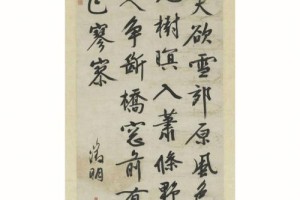 天欲雪郊原風色
樹暝入蕭條野
人爭斷橋窓前有
已寥寥
徵明